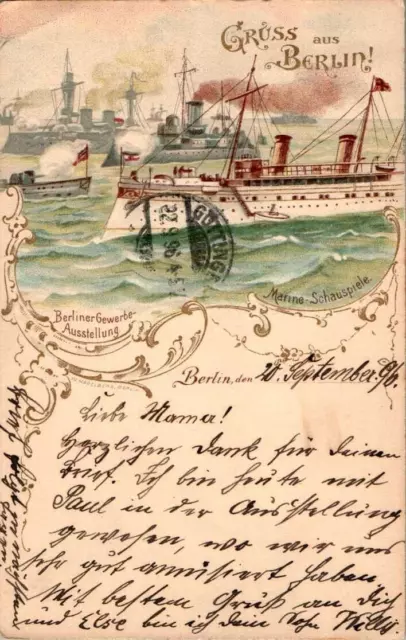 Gruss aus
Berlin!
GÖTTINGEN
22.9.96
Berliner Gewerbe-
Ausstellung
Marine-Schauspiele
Berlin, den 20. September 96.
Liebe Mama!
Herzlichen Dank für deinen
Brief. Ich bin heute mit
Paul in der Ausstellung
gewesen, wo wir uns
sehr gut amüsiert haben
Mit bestem Gruß an Dich
und Else bin ich dein Sohn Willy